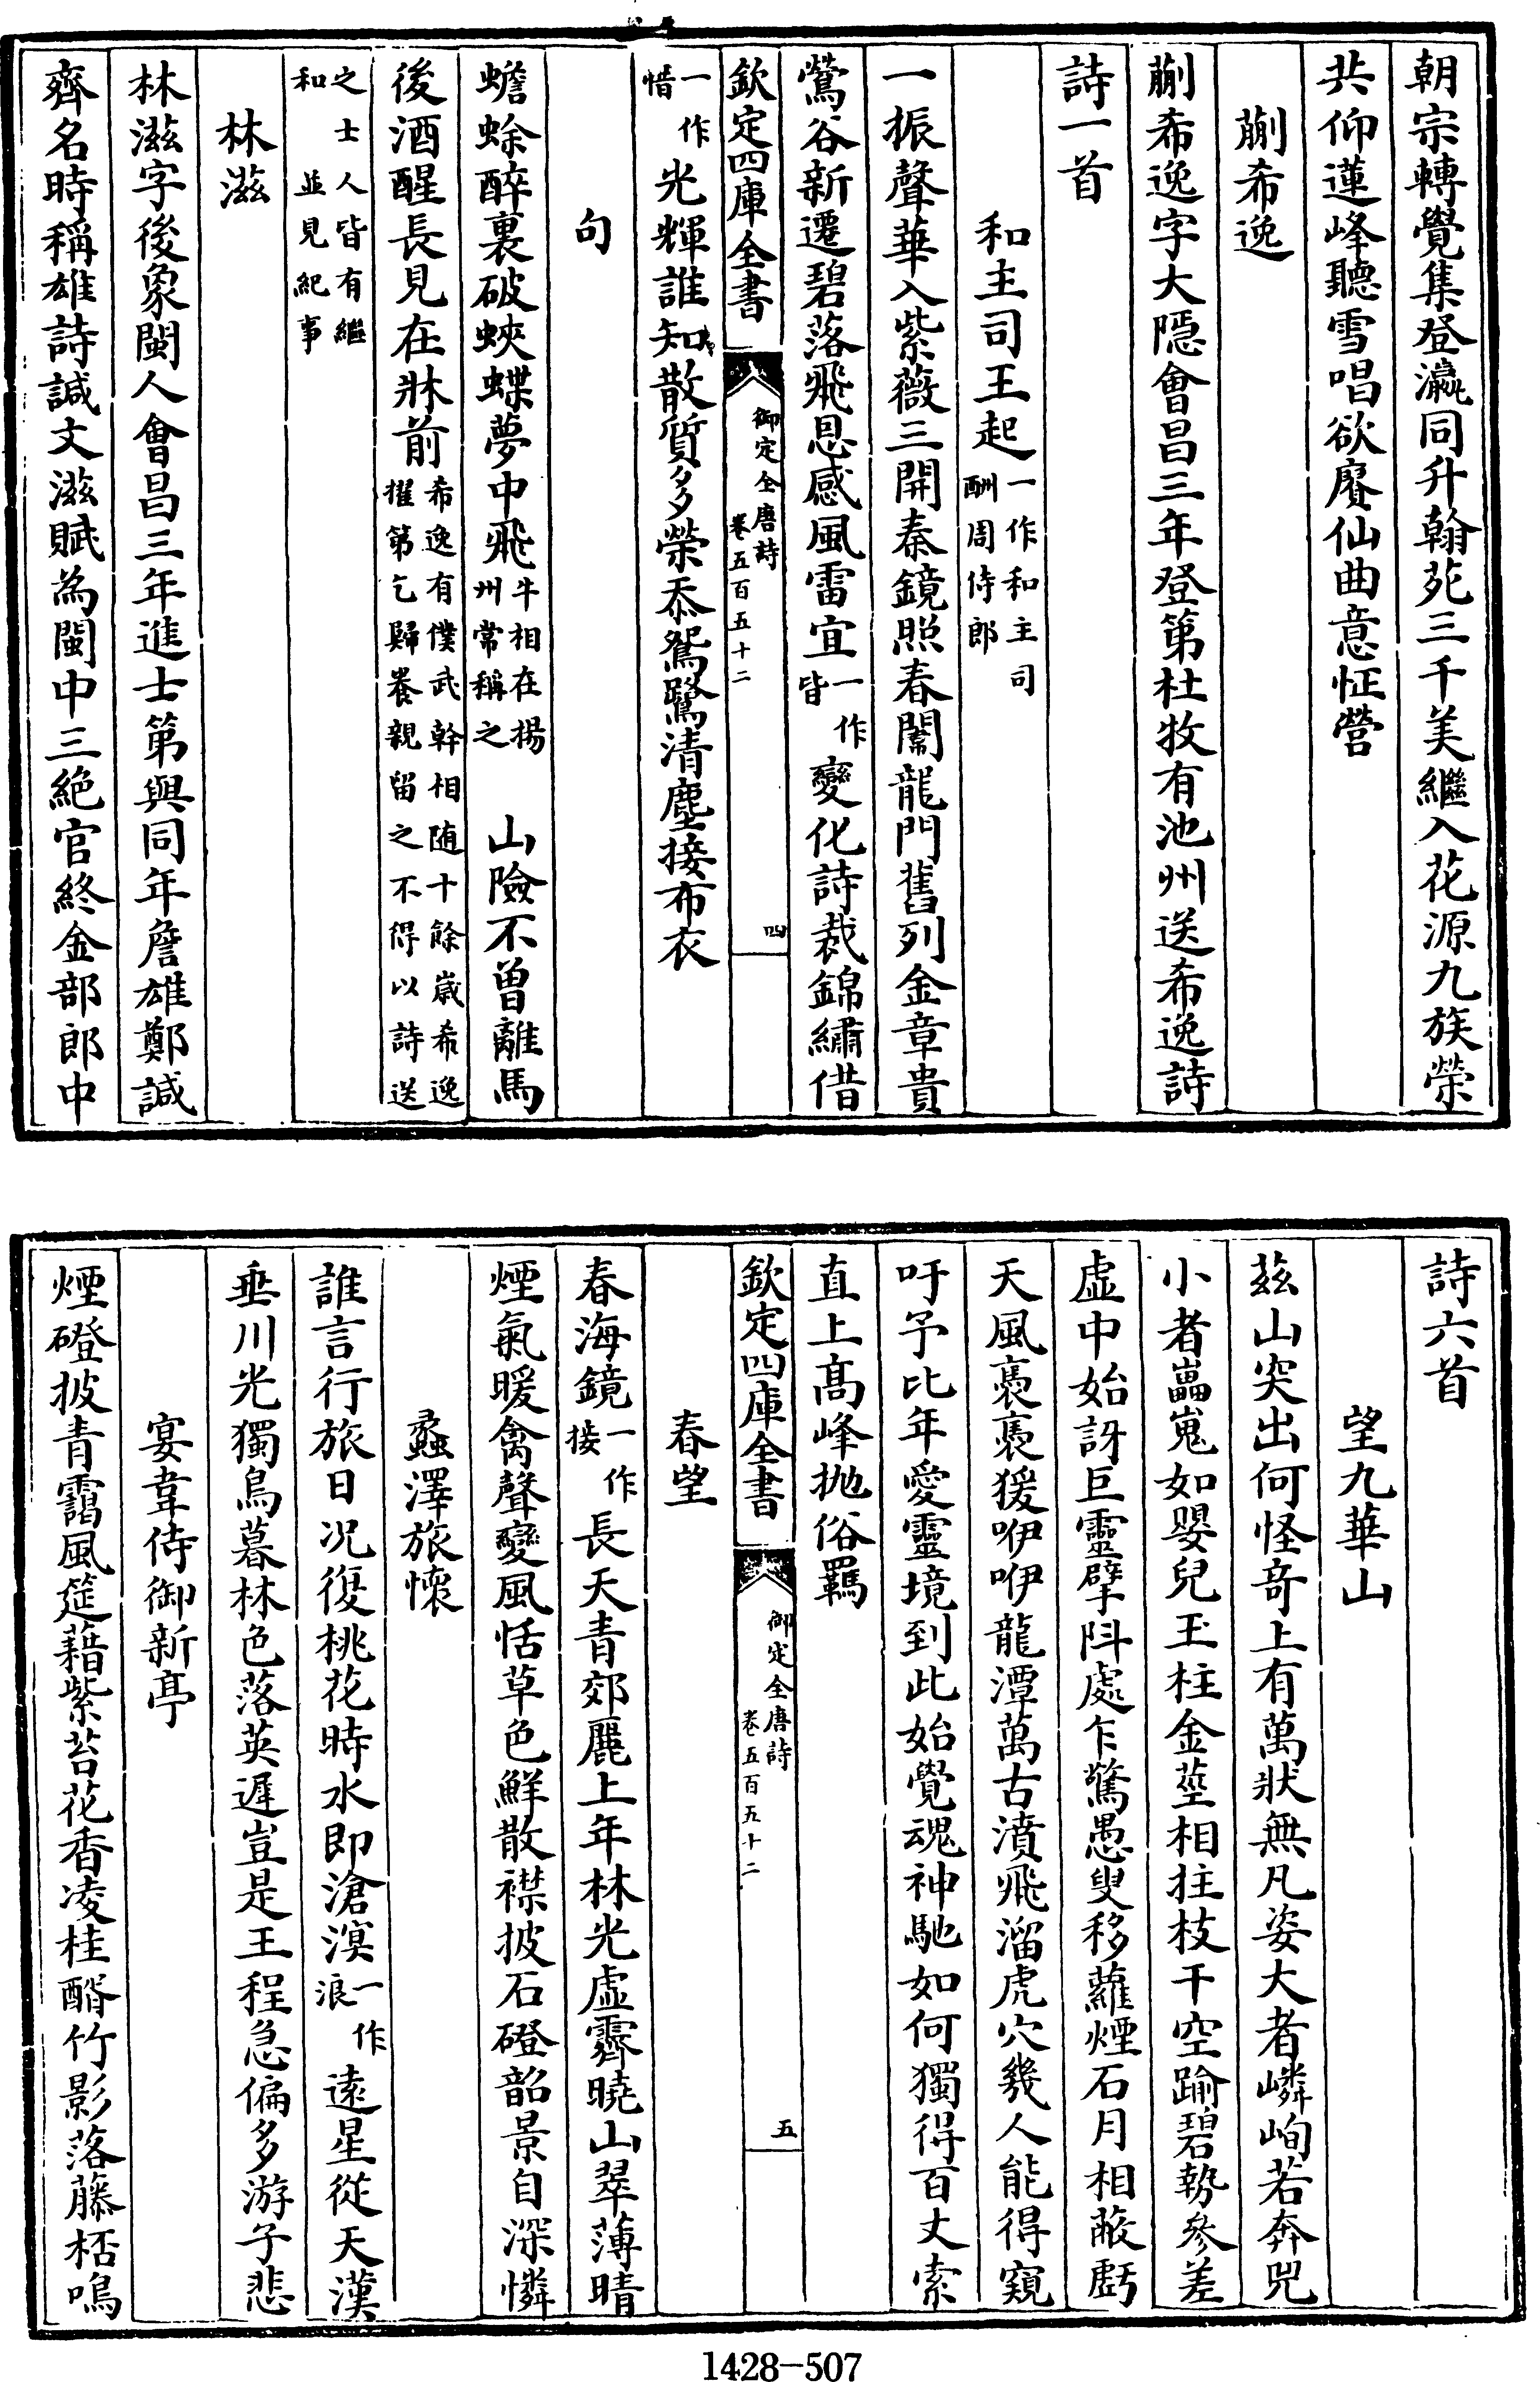 朝宗轉覺集登瀛同升翰苑三千美繼入花源九族榮
共仰蓮峰聽雪唱欲賡仙曲意怔營
蒯希逸
蒯希逸字大隱會昌三年登第杜牧有池州送希逸詩
詩一首
和主司王起一作和主司酬周侍郎
一振聲華入紫薇三開秦鏡照春闈龍門舊列金章貴
鶯谷新遷碧落飛恩感風雷宜一作皆變化詩裁錦繡借
欽定四庫全書 御定全唐詩 卷五百五十二 四
一作惜光輝誰知散質多榮忝鴛鷺清塵接布衣
句
蟾蜍醉裏破蛺蝶夢中飛牛相在揚州常稱之 山險不曾離馬
後酒醒長見在牀前希逸有僕武幹相随十餘歲希逸擢第乞歸養親留之不得以詩送
之士人皆有繼和並見紀事
林滋
林滋字後象閩人會昌三年進士第與同年詹雄鄭諴
齊名時稱雄詩諴文滋賦為閩中三絕官終金部郎中
詩六首
望九華山
茲山突出何怪奇上有萬狀無凡姿大者嶙峋若奔兕
小者嵓嵬如嬰兒玉柱金莖相拄枝干空踰碧勢參差
虛中始訝巨靈擘阧處乍驚愚叟移蘿煙石月相蔽虧
天風裊裊猨咿咿龍潭萬古濆飛溜虎穴幾人能得窺
吁予比年愛靈境到此始覺魂神馳如何獨得百丈索
直上高峰抛俗羈
欽定四庫全書 御定全唐詩 卷五百五十二 五
春望
春海鏡一作接長天青郊麗上年林光虛霽曉山翠薄晴
煙氣暖禽聲變風恬草色鮮散襟披石磴韶景自深憐
蠡澤旅懷
誰言行旅日况復桃花時水即滄溟一作浪遠星從天漢
垂川光獨鳥暮林色落英遲豈是王程急偏多游子悲
宴韋侍御新亭
煙磴披青靄風筵藉紫苔花香凌桂醑竹影落藤桮鳴
1428-507